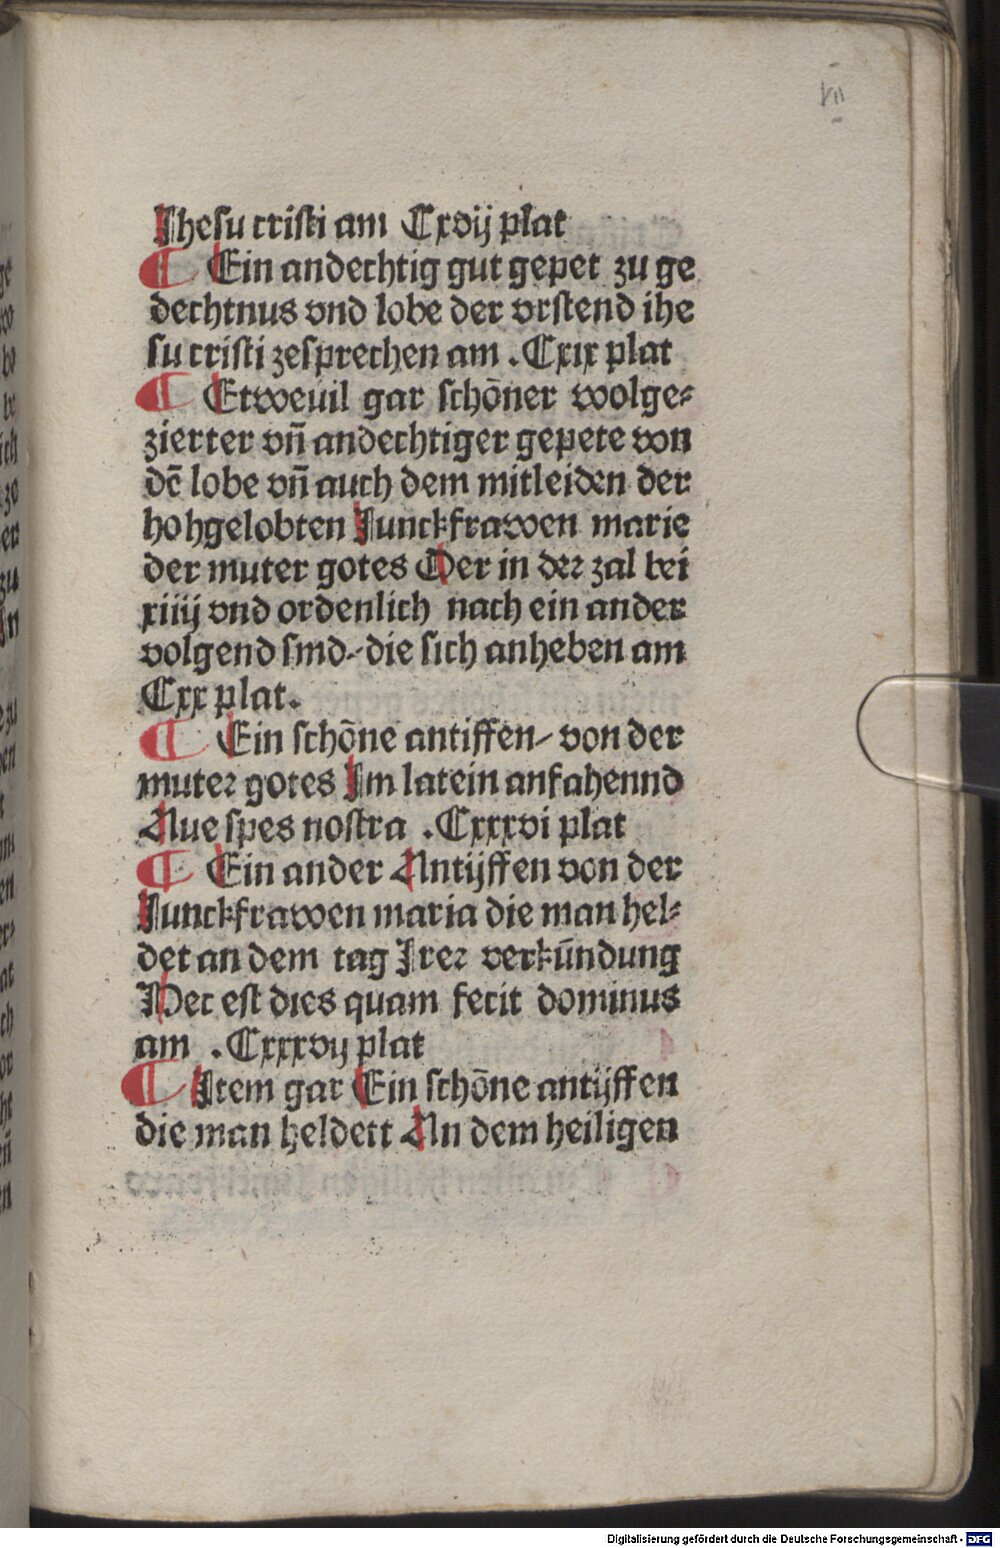 VII
Jhesu cristi am Cxvij plat
¶ Ein andechtig gut gepet zu ge
dechtnus vnd lobe der vrstend ihe
su cristi zesprechen am .Cxix plat
¶ Etweuil gar schōner wolge⸗
zierter vn̄ andechtiger gepete von
dē lobe vn̄ auch dem mitleiden der
hohgelobten Junckfrawen marie
der muter gotes Der in der zal bei
xiiij vnd ordenlich nach ein ander
volgend sind⸗ die sich anheben am
Cxx plat.
¶ Ein schōne antiffen⸗ von der
muter gotes Im latein anfahennd
Aue spes nostra .Cxxxvi plat
¶ Ein ander Antijffen von der
Junckfrawen maria die man hel⸗
det an dem tag Irer verkūndung
Hec est dies quam fecit dominus
am .Cxxxvij plat
¶ Item gar Ein schōne antijffen
die man heldett An dem heiligen
Digitalisierung gefördert durch die Deutsche Forschungsgemeinschaft - DFG